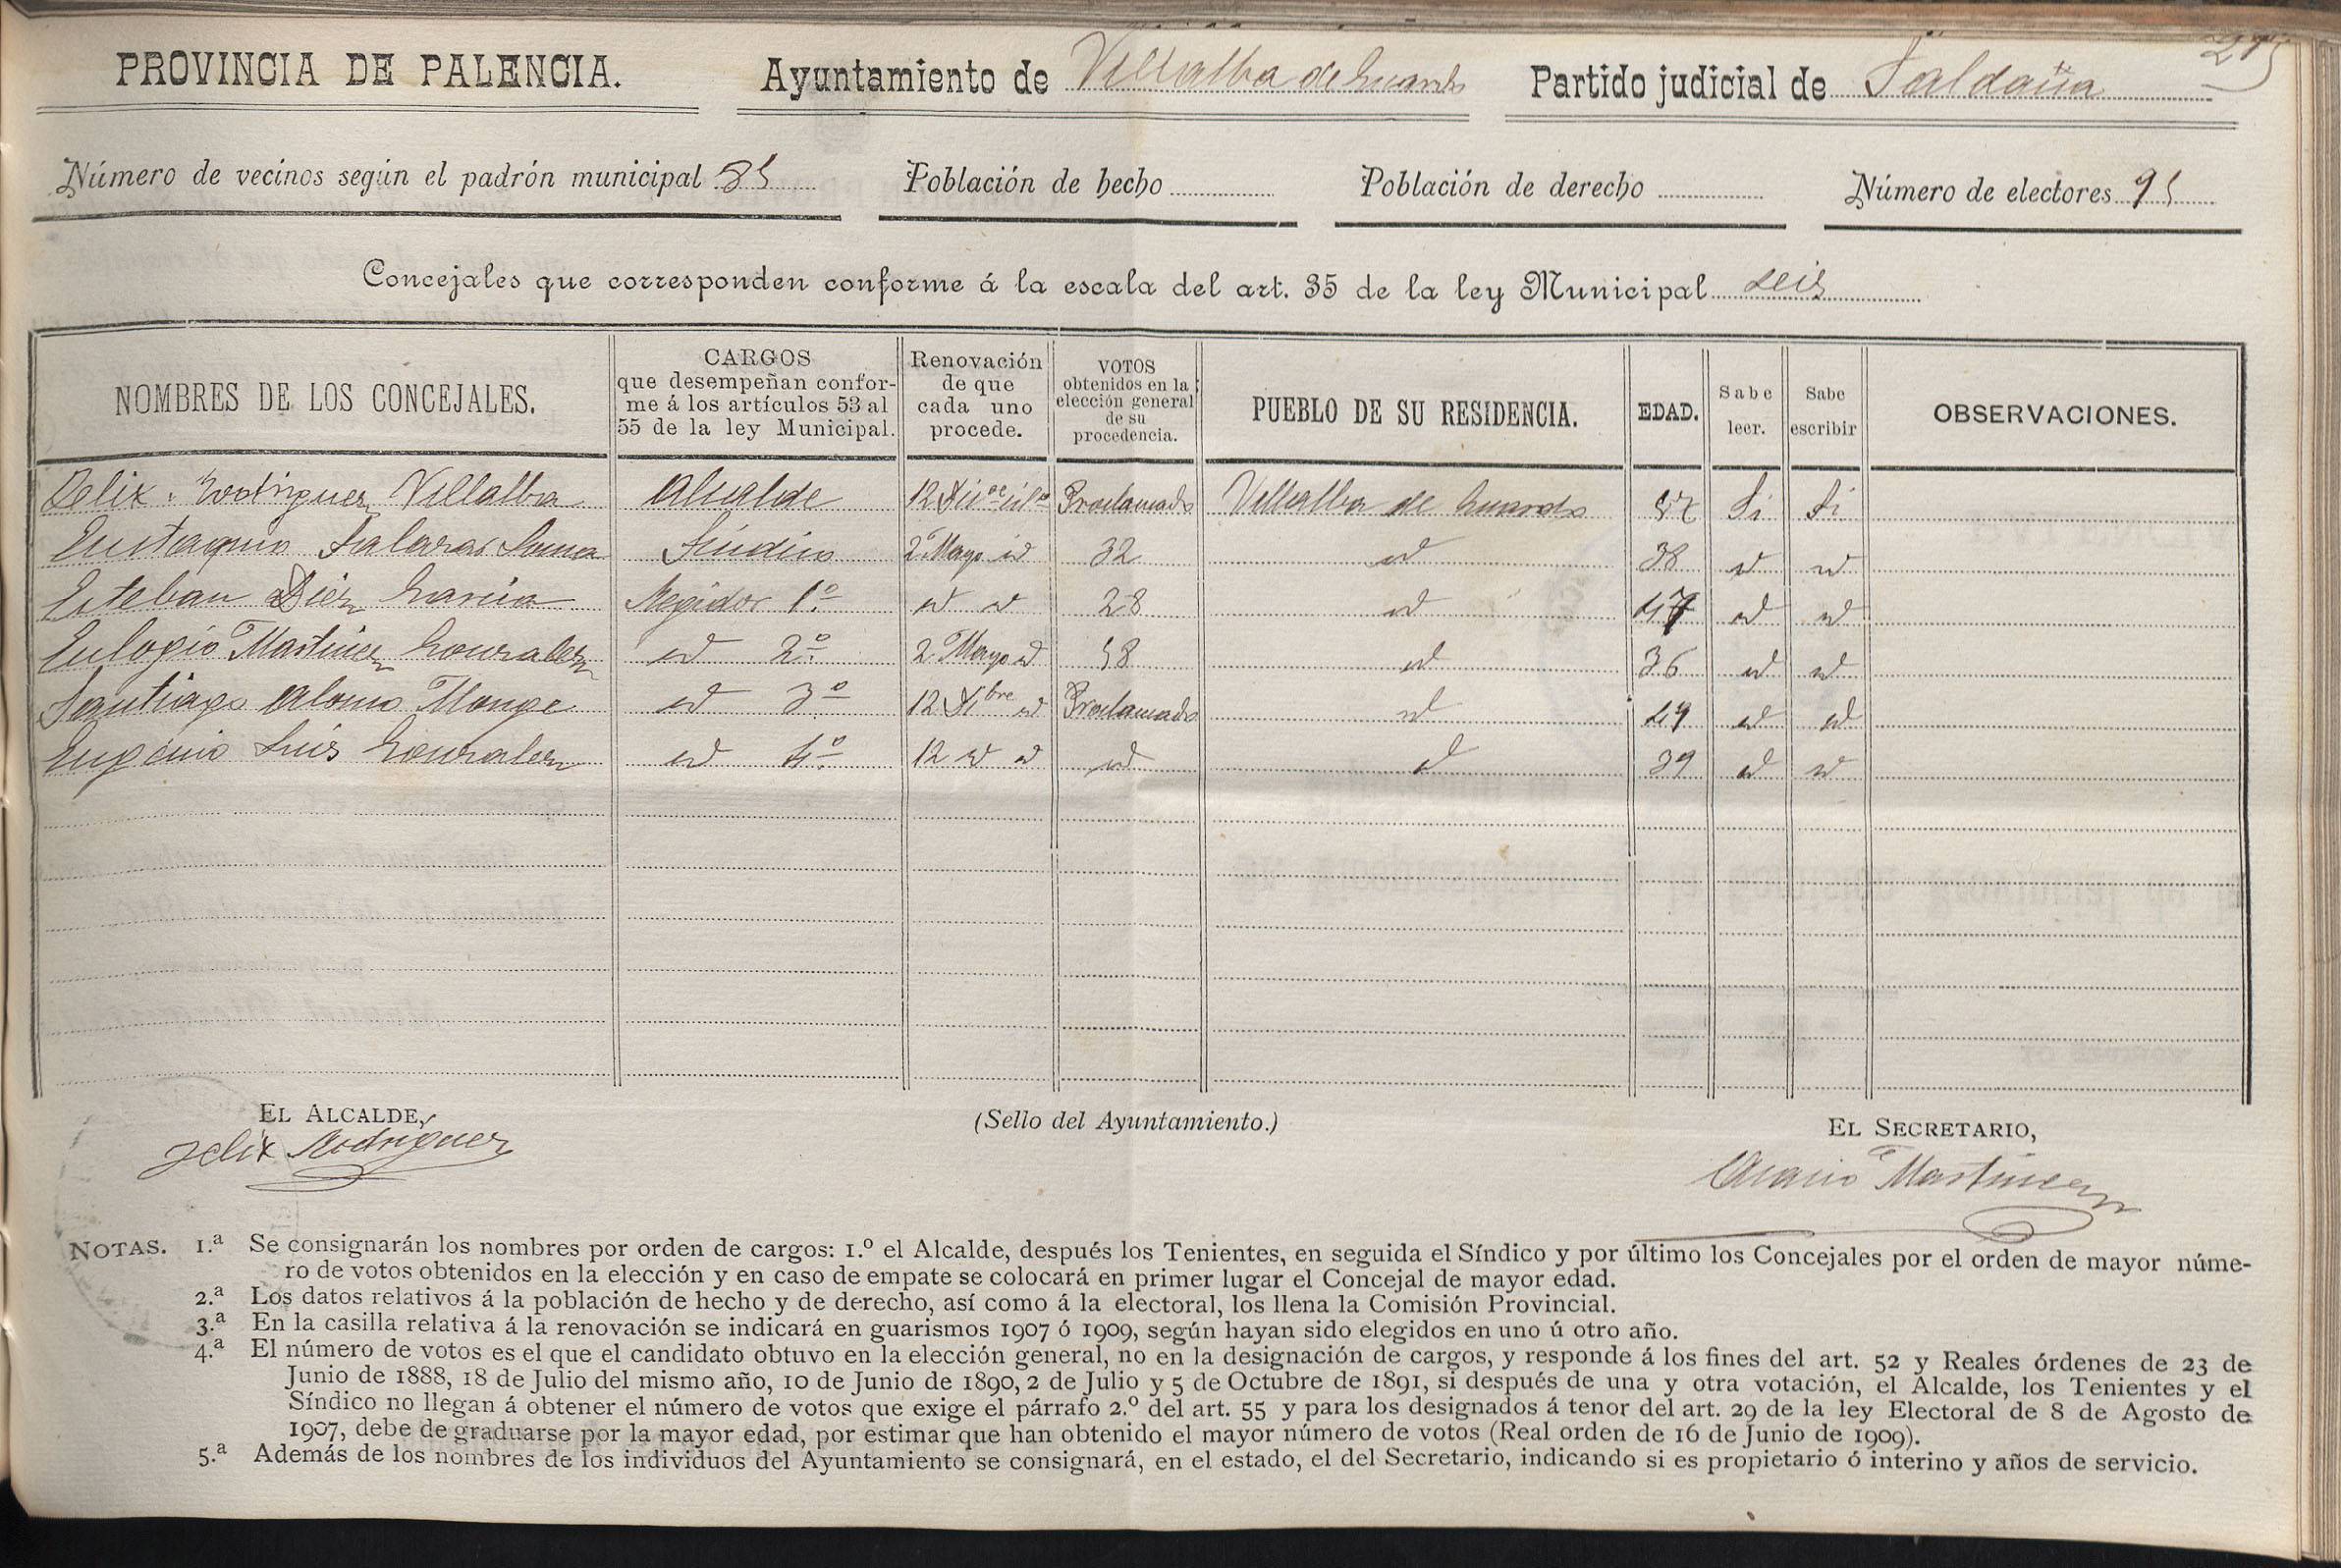 PROVINCIA DE PALENCIA. Ayuntamiento de Villalba de Guardo Partido judicial de Saldaña 275
Número de vecinos según el padrón municipal 85 Población de hecho Población de derecho Número de electores 95
Concejales que corresponden conforme á la escala del art. 35 de la ley Municipal seis
NOMBRES DE LOS CONCEJALES. CARGOS que desempeñan confor- me á los artículos 53 al 55 de la ley Municipal. Renovación de que cada uno procede. VOTOS obtenidos en la elección general de su procedencia. PUEBLO DE SU RESIDENCIA. EDAD. Sabe leer. Sabe escribir OBSERVACIONES.
Felix Rodriguez Villalba Alcalde 12 Proclamado Villalba de Guardo 57 Si Si
Eustaquio Salazar Sindico 2 Mayo id 32 id 38 id id
Esteban Diez Garcia Regidor 1.º id id 28 id 47 id id
Eulogio Martinez Gonzalez id 2.º 2 Mayo id 58 id 36 id id
Santiago Alonso Monge id 3º 12 Xbre id Proclamado id 49 id id
Eugenio Luis Gonzalez id 4.º 12 id id id id 39 id id
EL ALCALDE, (Sello del Ayuntamiento.) EL SECRETARIO,
Felix Rodriguez Martinez
NOTAS. 1.ª Se consignarán los nombres por orden de cargos: 1.º el Alcalde, después los Tenientes, en seguida el Síndico y por último los Concejales por el orden de mayor núme-
ro de votos obtenidos en la elección y en caso de empate se colocará en primer lugar el Concejal de mayor edad.
2.ª Los datos relativos á la población de hecho y de derecho, así como á la electoral, los llena la Comisión Provincial.
3.ª En la casilla relativa á la renovación se indicará en guarismos 1907 ó 1909, según hayan sido elegidos en uno ú otro año.
4.ª El número de votos es el que el candidato obtuvo en la elección general, no en la designación de cargos, y responde á los fines del art. 52 y Reales órdenes de 23 de
Junio de 1888, 18 de Julio del mismo año, 10 de Junio de 1890, 2 de Julio y 5 de Octubre de 1891, si después de una y otra votación, el Alcalde, los Tenientes y el
Síndico no llegan á obtener el número de votos que exige el párrafo 2.º del art. 55 y para los designados á tenor del art. 29 de la ley Electoral de 8 de Agosto de
1907, debe de graduarse por la mayor edad, por estimar que han obtenido el mayor número de votos (Real orden de 16 de Junio de 1909).
5.ª Además de los nombres de los individuos del Ayuntamiento se consignará, en el estado, el del Secretario, indicando si es propietario ó interino y años de servicio.